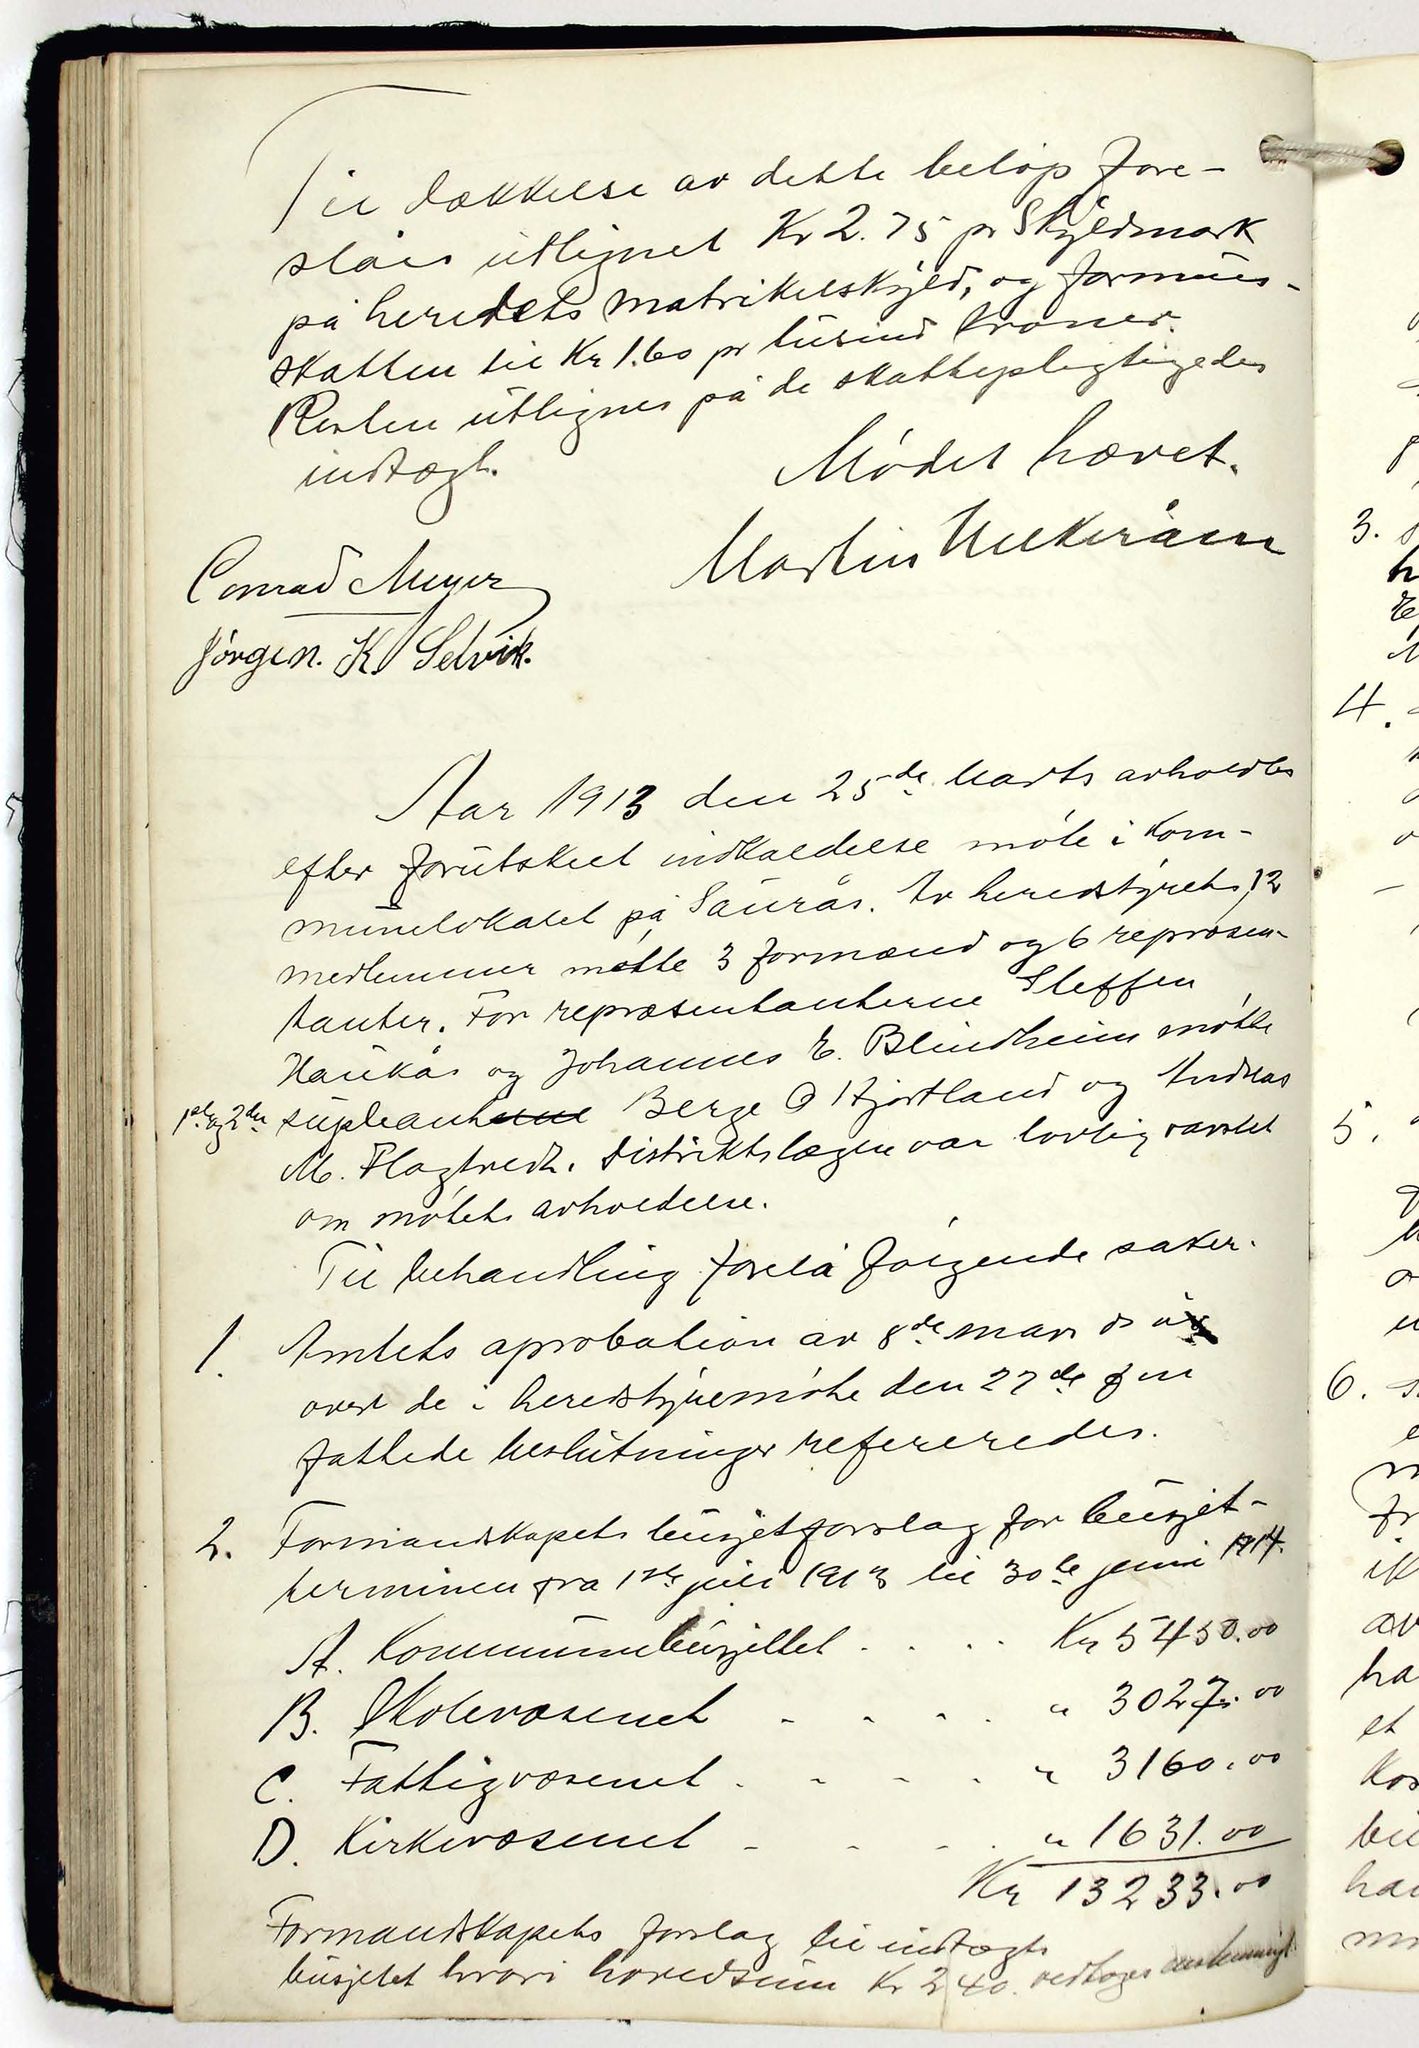 Til dækkelse av dette beløp fore-
slåes utlignet Kr 2.75 pr Skyldmark
på heredets matrikelskyld, og formues-
skatten til Kr 1.60 pr tusind kroner.
Resten utlignes på de skattepligtigedes
indtægt.
Mødet hævet.
Martin
Conrad Meyer
Jørgen. K. Selvik.
Aar 1913 den 25de. Marts avholdtes
efter forutskeet indkaldelse møte i Kom-
munelokalet på Saurås. Av heredstyrets 12
medlemmer møtte 3 formænd og 6 repræsen-
tanter. For repræsentanterne Steffen
Haukås og Johannes E. Blindheim møtte
1ste og 2den supleanterne Berge O Hjortland og Andreas
M. Flagtvedt. Distriktslægen var lovlig varslet
om møtets avholdelse.
Til behandling forelå følgende saker.
1. Amtets aprobation av 8de mars ds å
over de i heredstyremøte den 27de f m
fattede beslutninger refereredes.
2. Formandskapets busjetforslag for busjet-
terminen fra 1ste juli 1913 til 30te juni 1914.
A. Kommunebusjettet . . . . Kr 5450.00
B. Skolevæsenet - - - . " 3027.00
C. Fattigvæsenet . - - - . " 3160.00
D. Kirkevæsenet - - - . " 1631.00
Kr 13233.00
Formandskapets forslag til indtægts
busjetet hvori hovedsum Kr 240. vedtoges enstemmigt.